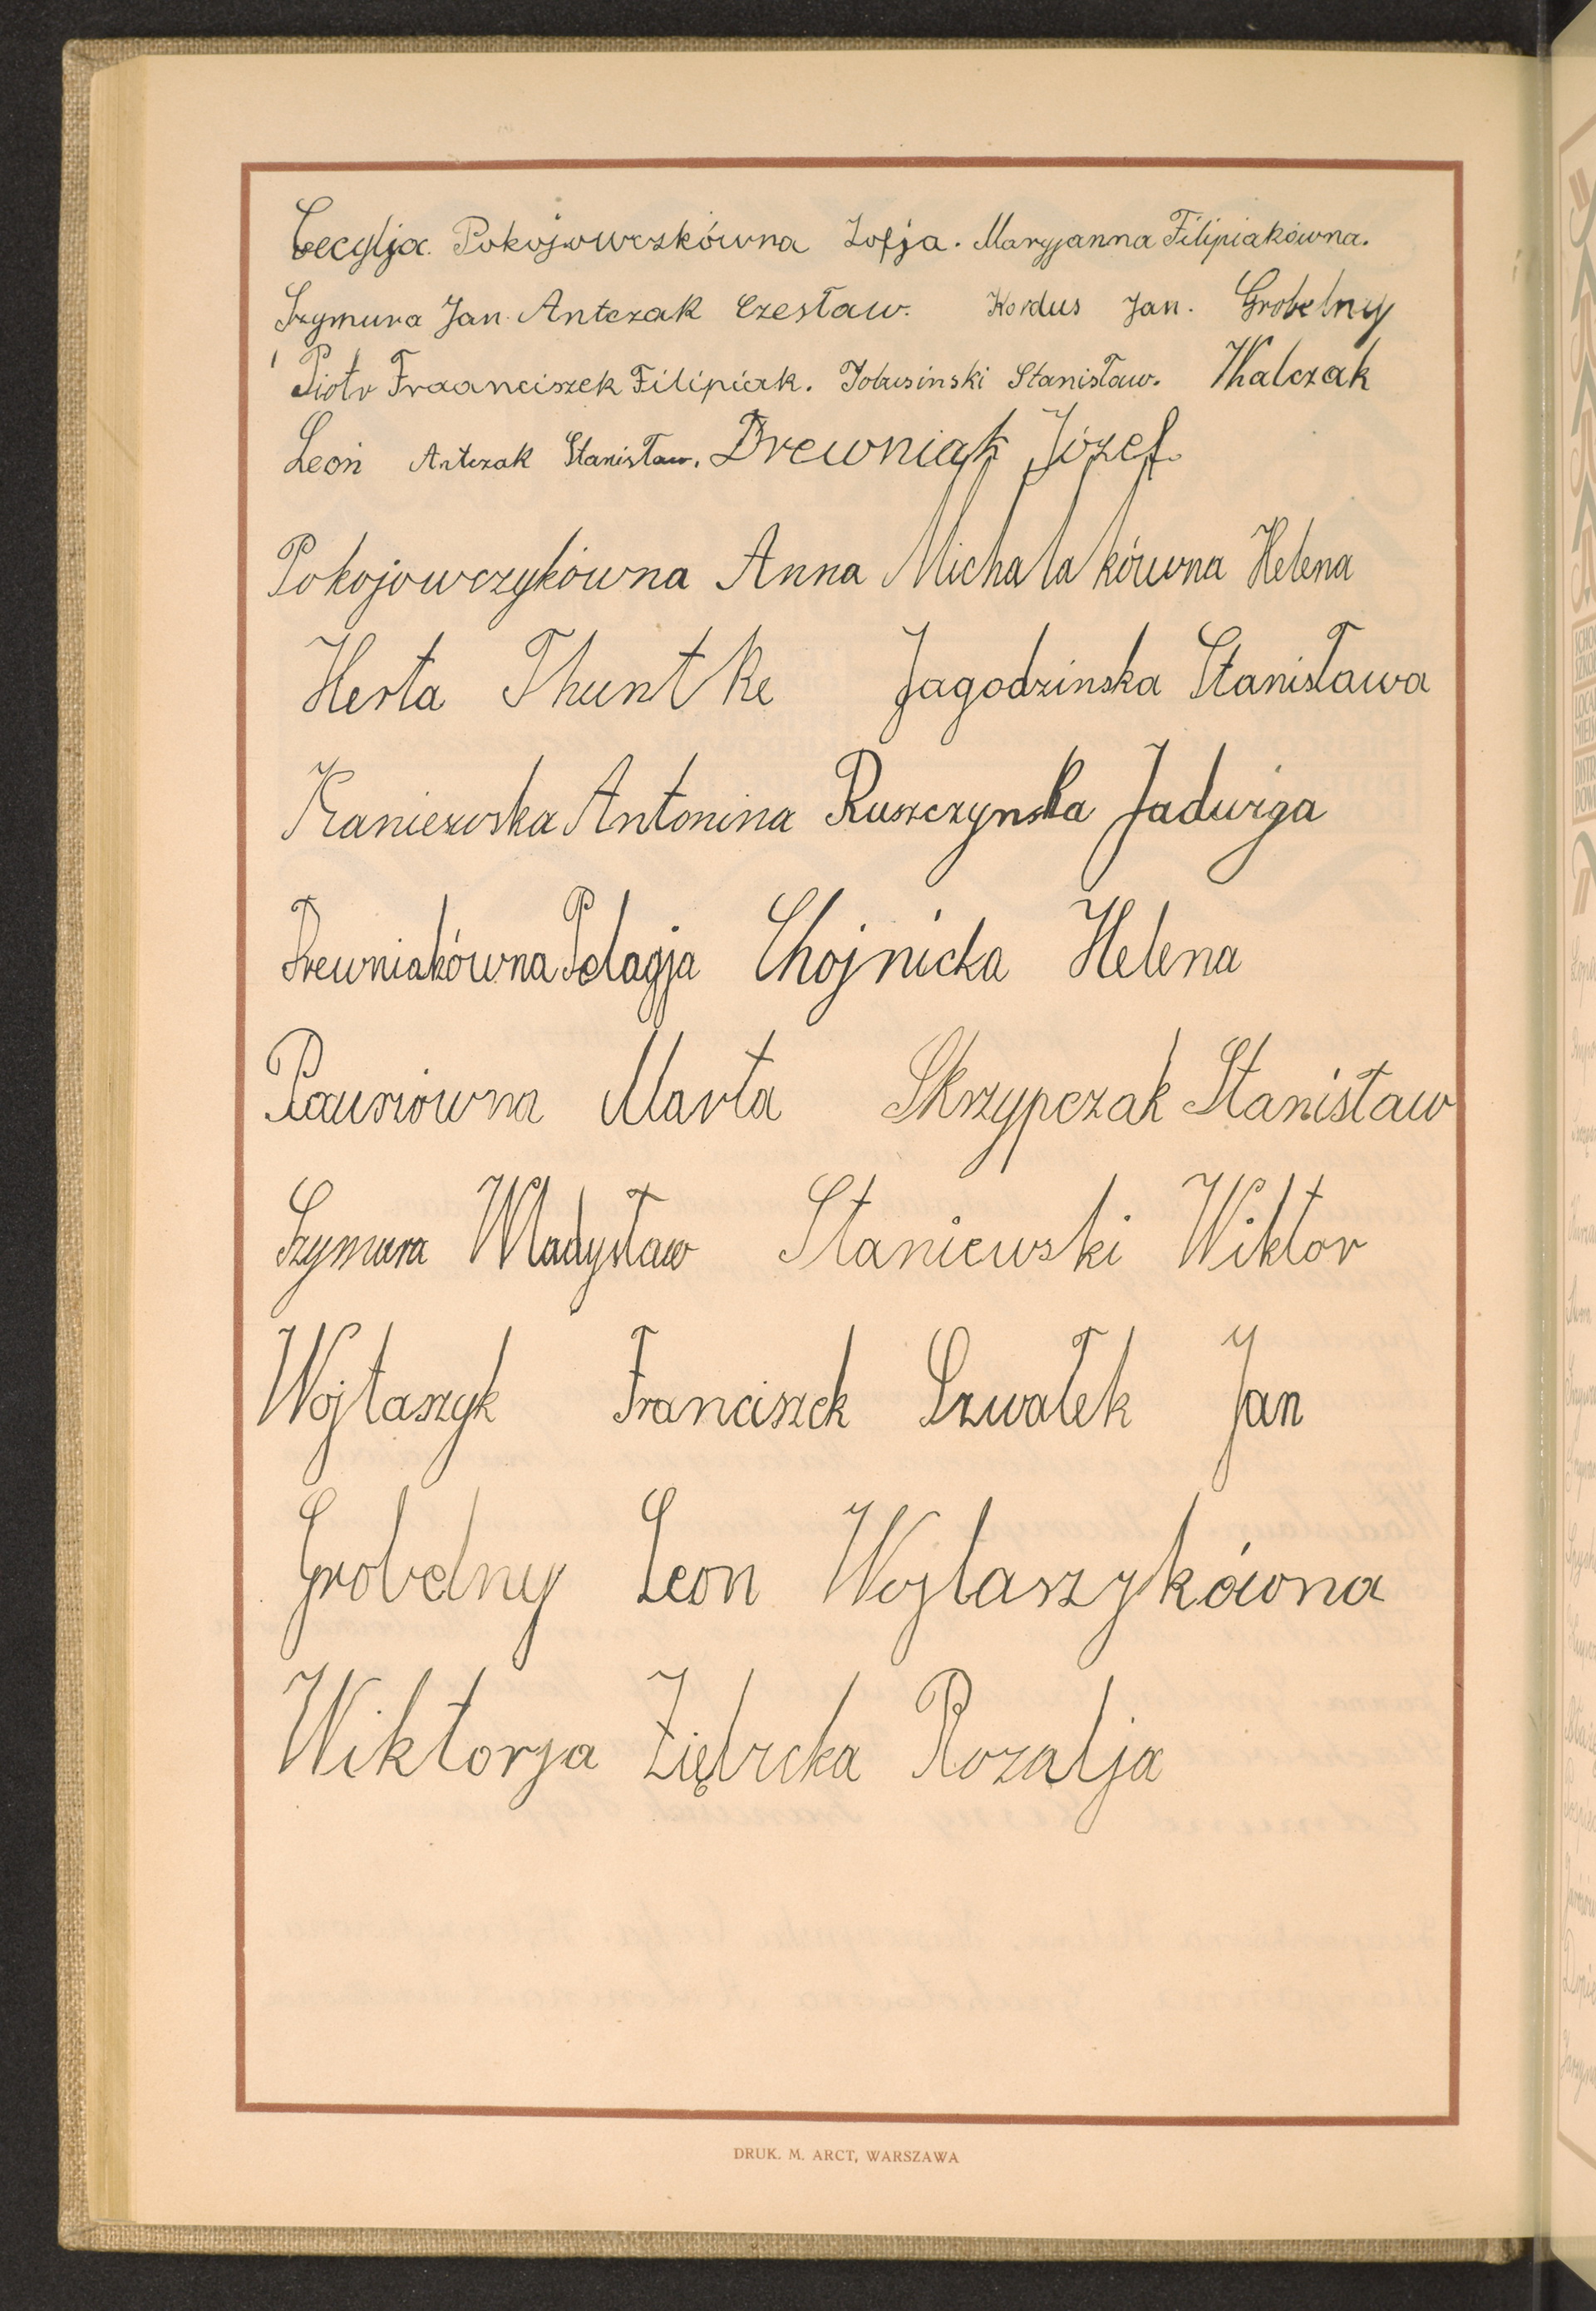 Cecylja Pokojowczkówna Zofja. Maryjanna Filipiakówna.
Szymura Jan. Antczak Czesław. Kordus Jan. Grobelny
Piotr Fraanciszek Filipiak. Tobusinski Stanisław. Walczak
Leon Antczak Stanisław. Drewniak Józef.
Pokojowczykówna Anna Michalakówna Helena
Herta Thuntke Jagodzinska Stanisława
Kaniewska Antonina Ruszczynska Jadwiga
Drewniakówna Pelagja Chojnicka Helena
Marta Skrzypczak Stanisław
Szymura Władysław Staniewski Wiktor
Wojtaszyk Franciszek Szwałek Jan
Grobelny Leon Wojtaszykówna
Wiktorja Ziębicka Rozalja
DRUK. M. ARCT, WARSZAWA